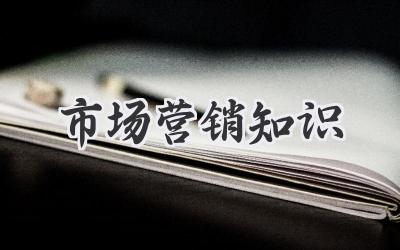 市场营销知识